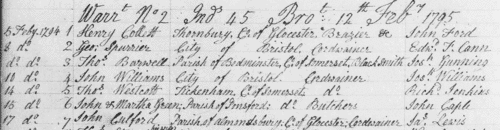 Warrt No 2 Ind 45 Brot. 12th Feby 1795
5 Feby. 1794 1 Henry Collett Thornbury, C. of Glocester Brazier &c John Ford
8 do 2 Geo. Spurrier City of Bristol Cordwainer Edwd T. Cann
do do 3 Thos. Barwell Parish of Bedminster, C. of Somerset, Black Smith Jos. Gunning
10 do 4 John Williams City of Bristol Cordwainer Jos. Williams
14 do 5 Thos. Westcott Tickenham, C. of Somerset do Richd. Jenkins
16 do 6 John & Martha Green, Parish of Butchers John Caple
17 do 7 John Parish of Almondsbury, C. of Glocester, Cordwainer Jas. Lewis